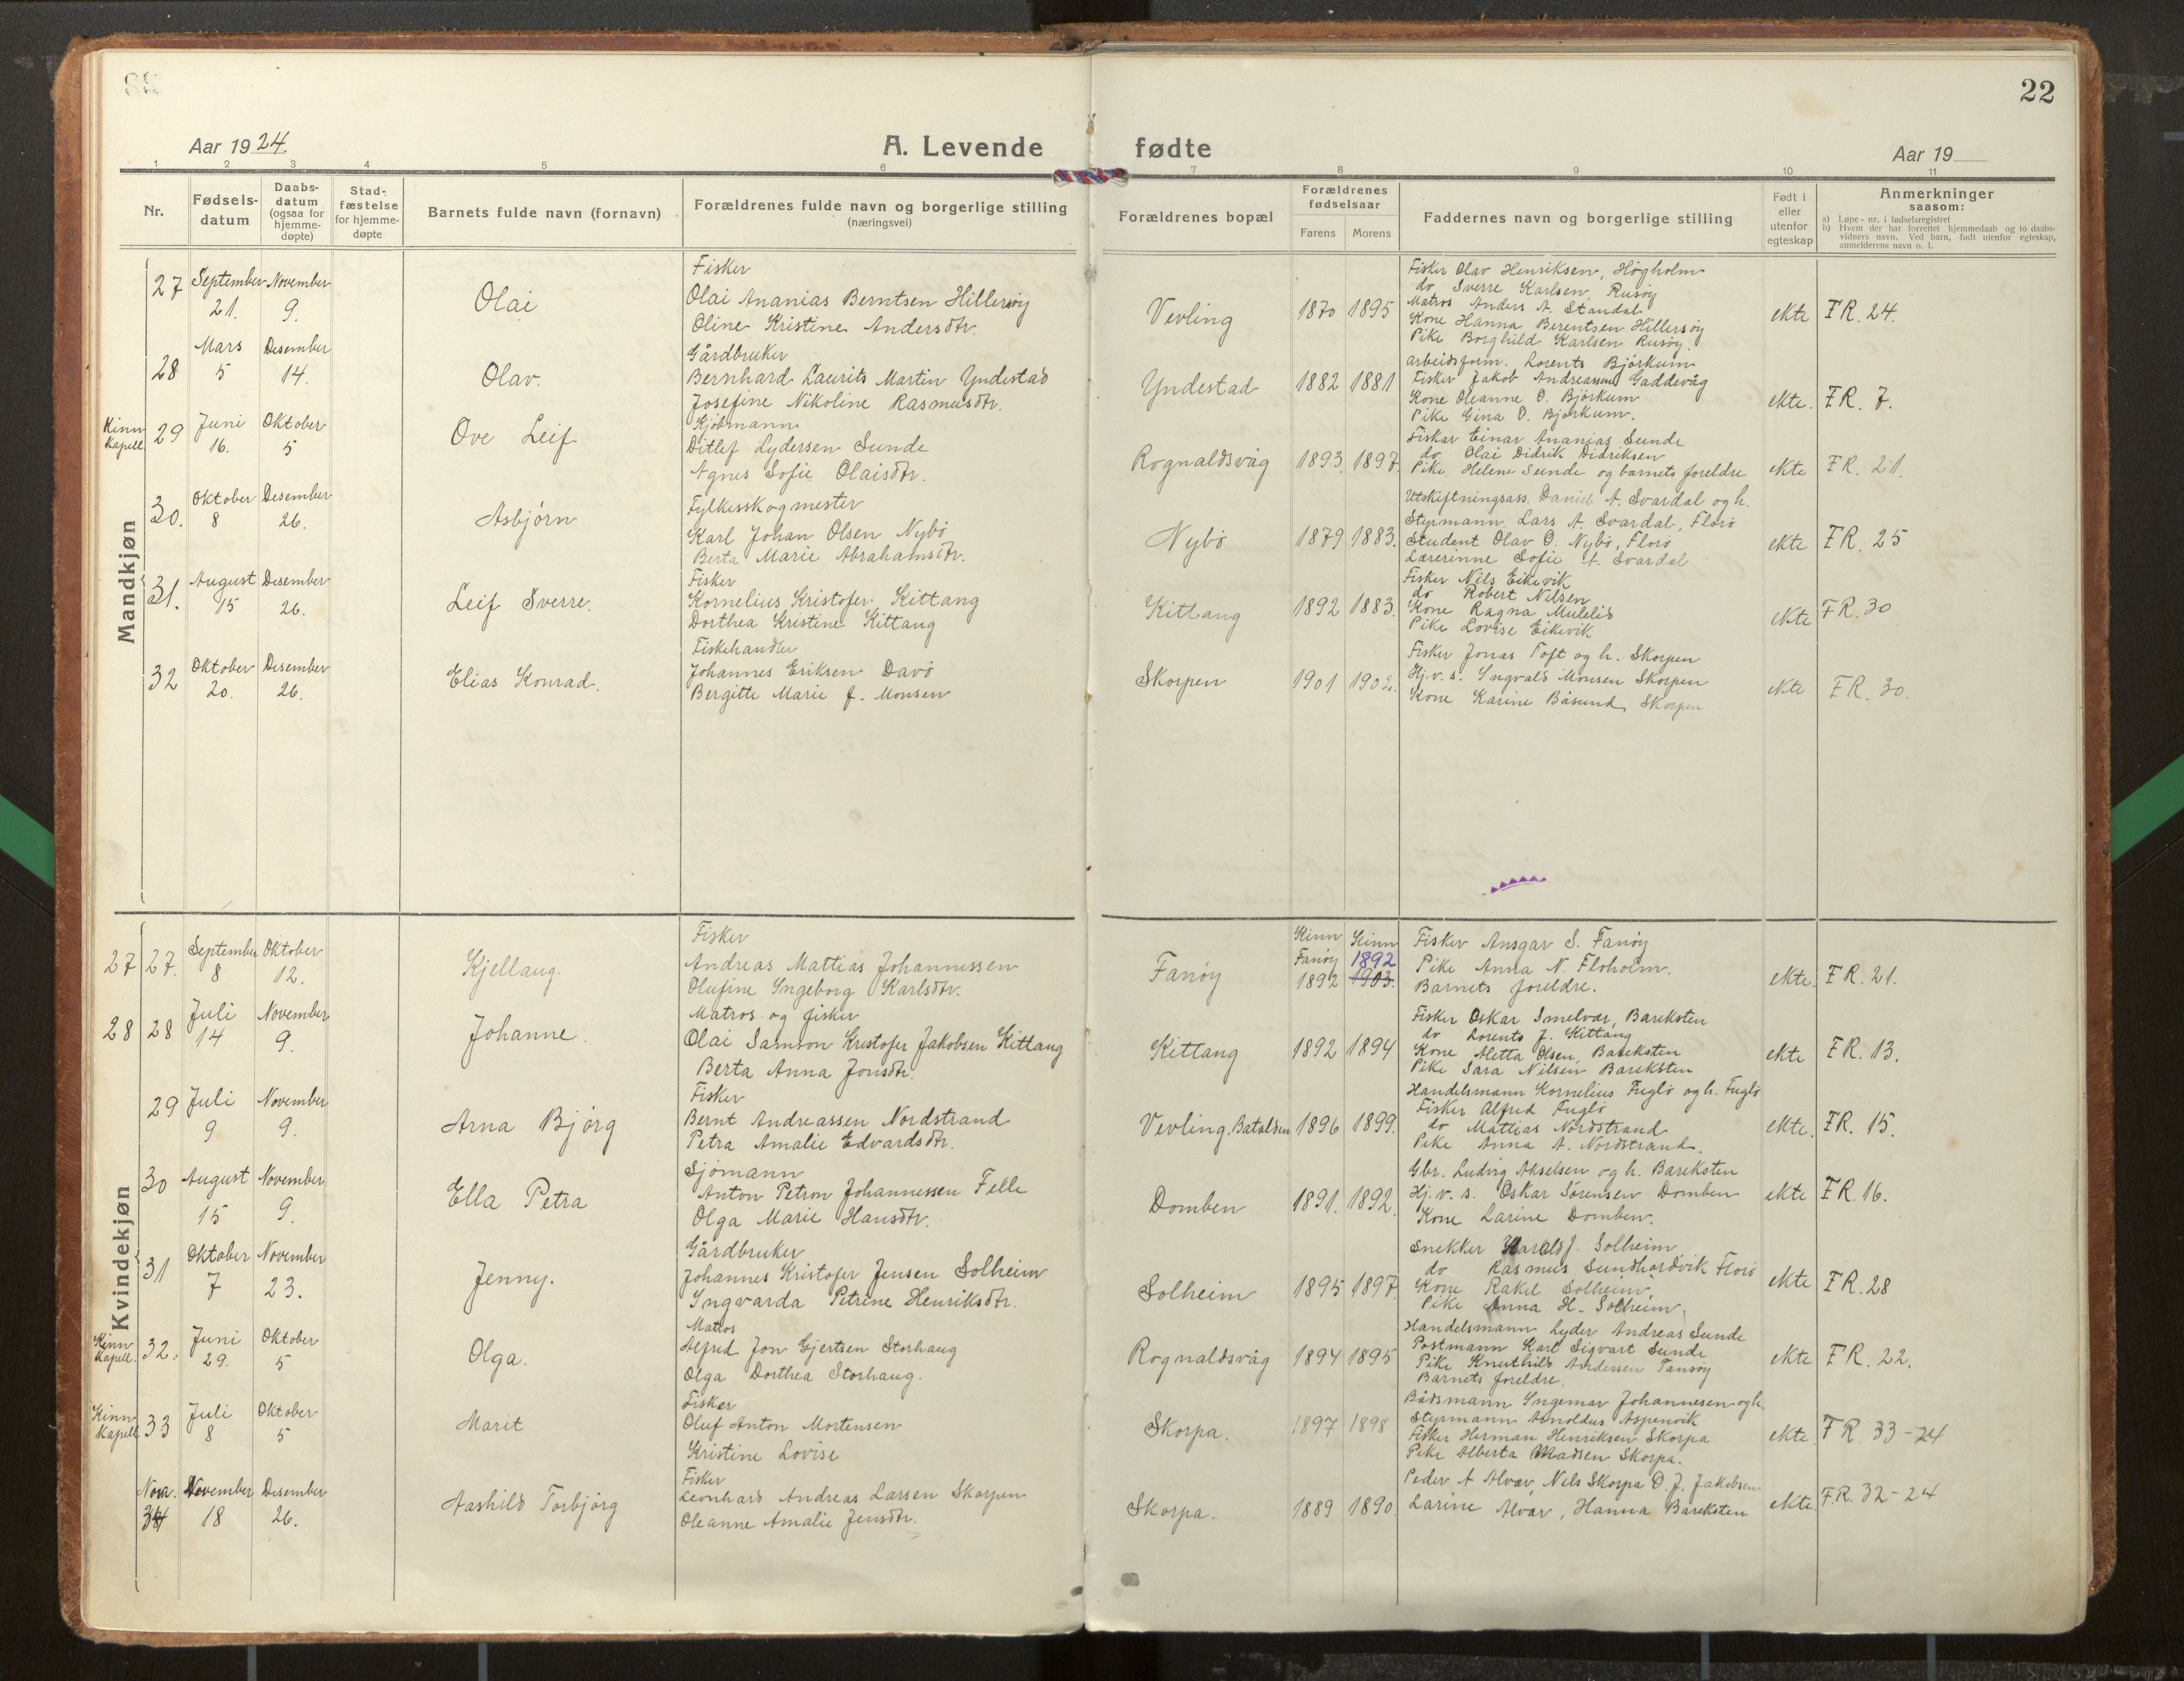 22
Aar 1924.
A. Levende fødte
Aar 19
1 2 3 4 5 6 7 8 9 10 11
Nr.
Fødsels-
datum
Daabs-
datum
(ogsaa for
hjemme-
døpte)
Stad-
fæstelse
for hjemme-
døpte
Barnets fulde navn (fornavn)
Forældrenes fulde navn og borgerlige stilling
(næringsvei)
Forældrenes bopæl
Forældrenes
fødselsaar
Farens Morens
Faddernes navn og borgerlige stilling
Født i
eller
utenfor
egteskap
Anmerkninger
saasom:
a) Løpe-nr. i fødselsregistret
b) Hvem der har forrettet hjemmedaab og to daabs-
vidners navn. Ved barn, født utenfor egteskap,
anmelderens navn o. l.
Mandkjøn
27
September
21.
November
9.
Olai
Fisker
Olai Ananias Berntsen Hillersøy
Oline Kristine Andersdtr.
Vevling
1870 1895
Fisker Olav Henriksen, Høgholm
do Sverre Karlsen, Rusøy
Matros Anders A. Standal
Kone Hanna Berentsen Hillersøy
Pike Borghild Karlsen Rusøy.
ekte
FR. 24.
28
Mars
5
Desember
14.
Olav.
Gårdbruker
Bernhard Laurits Martin Yndestad
Josefine Nikoline Rasmusdtr.
Yndestad
1882 1881
arbeidsform. Lorents Bjørkum
Fisker Jakob Andreassen Gaddevåg
Kone Oleanne O. Bjørkum
Pike Gina O. Bjørkum.
ekte.
FR. 7.
Kinn
Kapell
29
Juni
16.
Oktober
5
Ove Leif
Sjømann
Ditlef Lydersen Sunde
Agnes Sofie Olaisdtr.
Rognaldsvåg
1893. 1897.
Fisker Einar Ananias Sunde
do Olai Didrik Didriksen
Pike Helene Sunde og barnets foreldre
ekte
FR. 21.
30.
Oktober
8
Desember
26.
Asbjørn
Fylkesskogmester
Karl Johan Olsen Nybø
Berta Marie Abrahamsdtr.
Nybø
1879 1883.
Utskiftningsass. Daniel A. Svardal og h.
Styrmann Lars A. Svardal, Florø
Student Olav O. Nybø, Florø
Lærerinne Sofie A. Svardal
ekte
FR. 25
31.
August
15
Desember
26.
Leif Sverre.
Fisker
Kornelius Kristofer Kittang
Dorthea Kristine Kittang
Kittang
1892 1883.
Fisker Nils Eikevik
do Robert Nilsen
Kone Ragna Mulelid
Pike Lovise Eikevik
ekte
FR. 30
32
Oktober
20.
Desember
26.
Elias Konrad.
Fiskehandler
Johannes Eriksen Davø
Bergitte Marie J. Monsen
Skorpen
1901 1902.
Fisker Jonas Toft og h. Skorpen
Hj.v.s. Yngvald Monsen Skorpen
Kone Karine Båsund, Skorpen
ekte
FR. 30.
Kvindekjøn
27 27.
September
8
Oktober
12.
Kjellaug.
Fisker
Andreas Mattias Johannessen
Olufine Yngeborg Karlsdtr.
Fanøy
Kinn
Fanøy
1892
Kinn
1892
1903.
Fisker Ansgar S. Fanøy
Pike Anna N. Floholm.
Barnets foreldre.
ekte.
FR. 21.
28 28
Juli
14
November
9.
Johanne.
Matros og fisker
Olai Samson Kristofer Jakobsen Kittang
Berta Anna Jonsdtr.
Kittang
1892 1894
Fisker Oskar Smelvær, Bareksten
do Lorents J. Kittang
Kone Aletta Olsen, Bareksten
Pike Sara Nilsen Bareksten
ekte
FR. 13.
29
Juli
9
November
9.
Arna Bjørg
Fisker
Bernt Andreassen Nordstrand
Petra Amalie Edvardsdtr.
Vevling, Batalden
1896 1899.
Handelsmann Kornelius Fuglø og h. Fuglø
Fisker Alfred Fuglø
do Mattias Nordstrand
Pike Anna A. Nordstrand.
ekte.
FR. 15.
30
August
15
November
9.
Ella Petra
Sjømann
Anton Petron Johannessen Felle
Olga Marie Hansdtr.
Domben
1891. 1892.
Gbr. Ludvig Akselsen og h. Bareksten
Hj.v.s. Oskar Sørensen Domben
Kone Larine Domben.
ekte
FR. 16.
31
Oktober
7
November
23.
Jenny.
Gårdbruker
Johannes Kristofer Jensen Solheim
Yngvarda Petrine Henriksdtr.
Solheim
1895 1897.
Snekker Harald J. Solheim
do Rasmus Sundhordvik Florø
Kone Rakel Solheim
Pike Anna H. Solheim.
ekte
FR. 28
Kinn
Kapell.
32.
Juni
29.
Oktober
5
Olga.
Matros
Alfred Jon Gjertsen Storhaug
Olga Dorthea Storhaug.
Rognaldsvåg
1894 1895
Handelsmann Lyder Andreas Sunde
Postmann Karl Sigvart Sunde
Pike Knuthild Andersen Tansøy
Barnets foreldre.
ekte
FR. 22.
Kinn
Kapell
33
Juli
8
Oktober
5
Marit
Fisker
Oluf Anton Mortensen
Kristine Lovise
Skorpa.
1897 1898
Bådsmann Yngemar Johannesen og h.
Styrmann Arnoldus Aspenvik
Fisker Herman Henriksen Skorpa
Pike Alberta Madsen Skorpa.
ekte.
FR. 33-24
Nora.
34
November
18
Desember
26.
Aashild Torbjørg
Fisker
Leonhard Andreas Larsen Skorpen
Oleanne Amalie Jensdtr.
Skorpa.
1889 1890.
Peder A Alvær, Nels Skorpa O. J. Jakobsen
Larine Alvær, Hanna Bareksten
ekte.
FR. 32-24